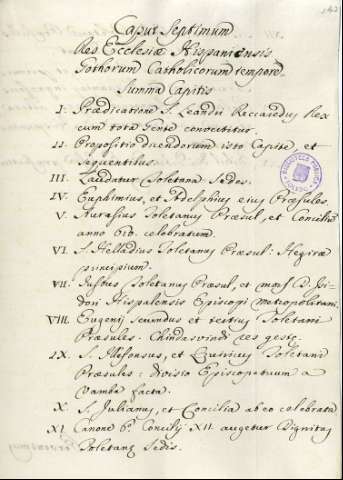 Caput Septimum
Res Ecclesiæ Hispaniensis
Gothorum Catholicorum tempore
Summa Capitis
I. Prædicatione S. Leandri Reccaredus Rex
cum tota gente convertitur.
II. Propositio dicendorum isto Capite, et
sequentibus.
III. Laudatur Toletana Sedes.
IV. Euphimius, et Adelphius eius Præsules.
V. Aurasius Toletanus Præsul, et Concilium
anno 610. celebratum.
VI. S. Helladius Toletanus Præsul: Hegiræ
principium.
VII. Justus Toletanus Præsul, et mors D. Isi-
dori Hispalensis Episcopi metropolitani.
VIII. Eugenij secundus et tertius Toletani
Præsules: Chindasvindi res gestæ.
IX. S. Ildefonsus, et Quiricus Toletani
Præsules: divisio Episcopatuum a
Vamba facta.
X. S. Julianus, et Concilia ab eo celebrata
XI. Canone 6º Concilij XII. augetur Dignitas
Toletanę Sedis.
BIBLIOTECA PUBLICA
TOLEDO